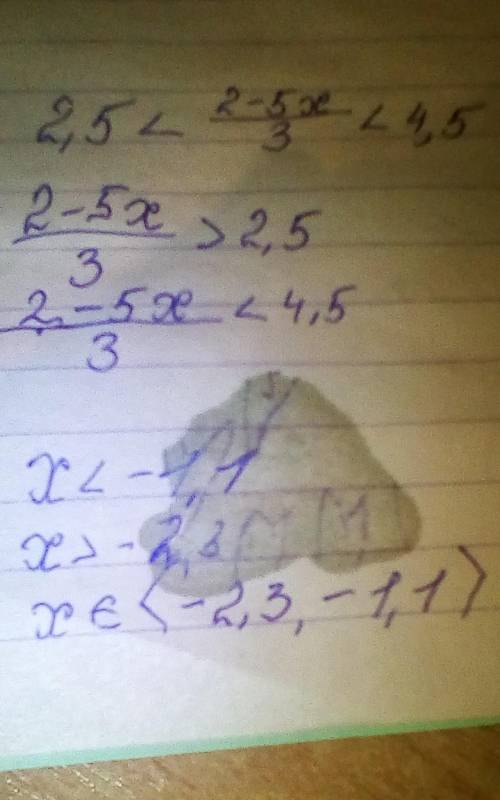 2,5 < (2-5x)/3 < 4,5
(2-5x)/3 > 2,5
(2-5x)/3 < 4,5
x < -1,1
x > -2,3
x ∈ ⟨-2,3, -1,1⟩